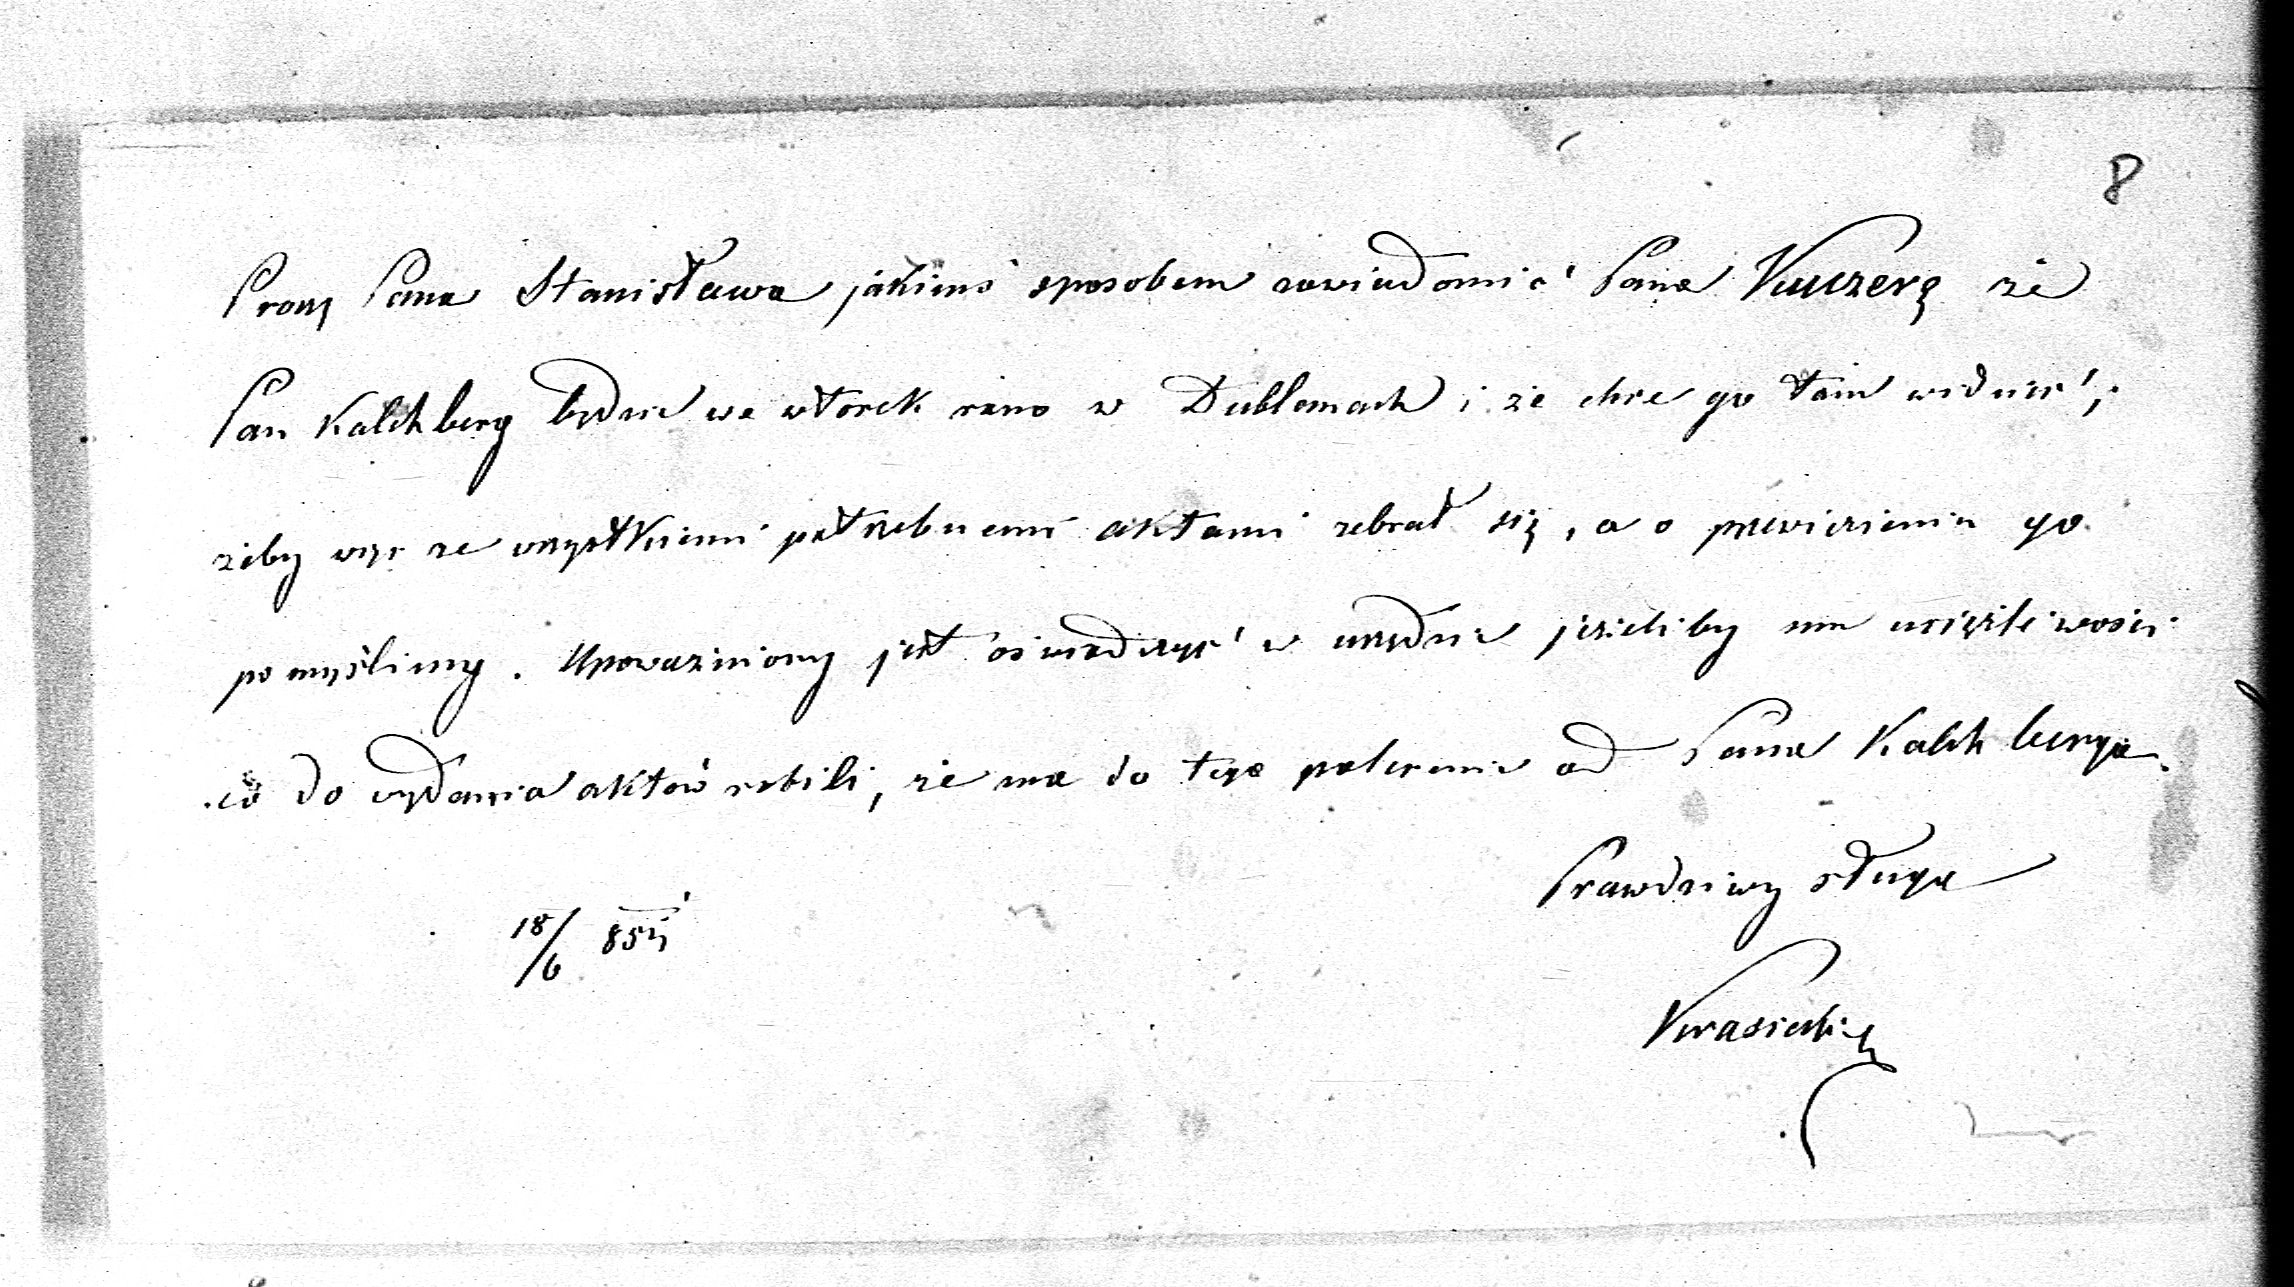 8
Proszę Pana Stanisława jakimś sposobem zawiadomić Pana Kuczerę że
Pan Kalchberg będzie we wtorek rano w Dublanach i że chce go tam widzieć;
żeby więc ze wszystkiemi potrzebnemi aktami zebrał się, a o przewiezieniu go
pomyślimy. Upoważniony jest oświadczyć w urzędzie jeżeliby mu uciążliwości
co do wydania aktów robili, że ma do tego polecenie od Pana Kalchberga.
Prawdziwy sługa
18/6 85
Krasicki